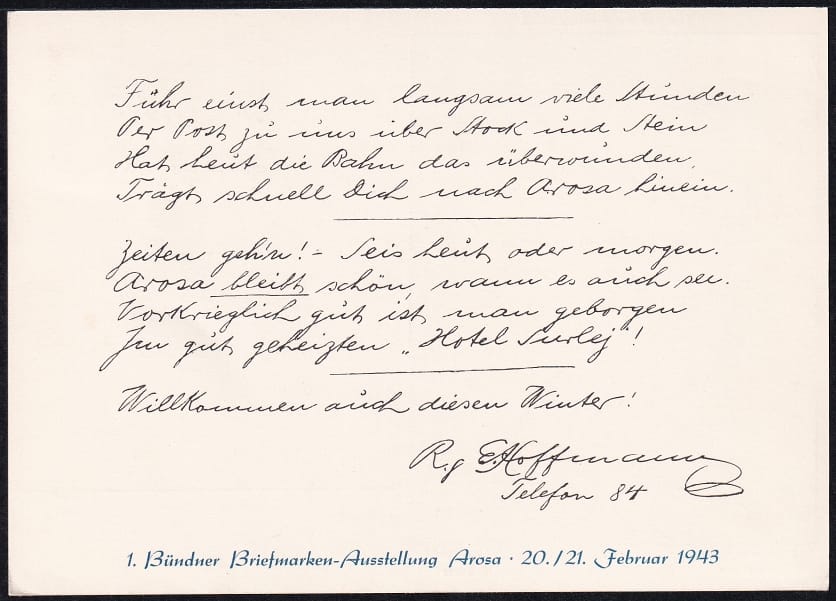 Führ einst man langsam viele Stunden
Per Post zu uns über Stock und Stein
Hat heut die Bahn das überwunden,
Trägt schnell Dich nach Arosa hinein.
Zeiten geh'n! - Seis heut oder morgen.
Arosa bleibt schön, wann es auch sei.
Vorkrieglich gut ist man geborgen
Im gut geheizten „Hotel Surlej"!
Willkommen auch diesen Winter!
E. Hoffmann
Telefon 84
1. Bündner Briefmarken-Ausstellung Arosa · 20./21. Februar 1943